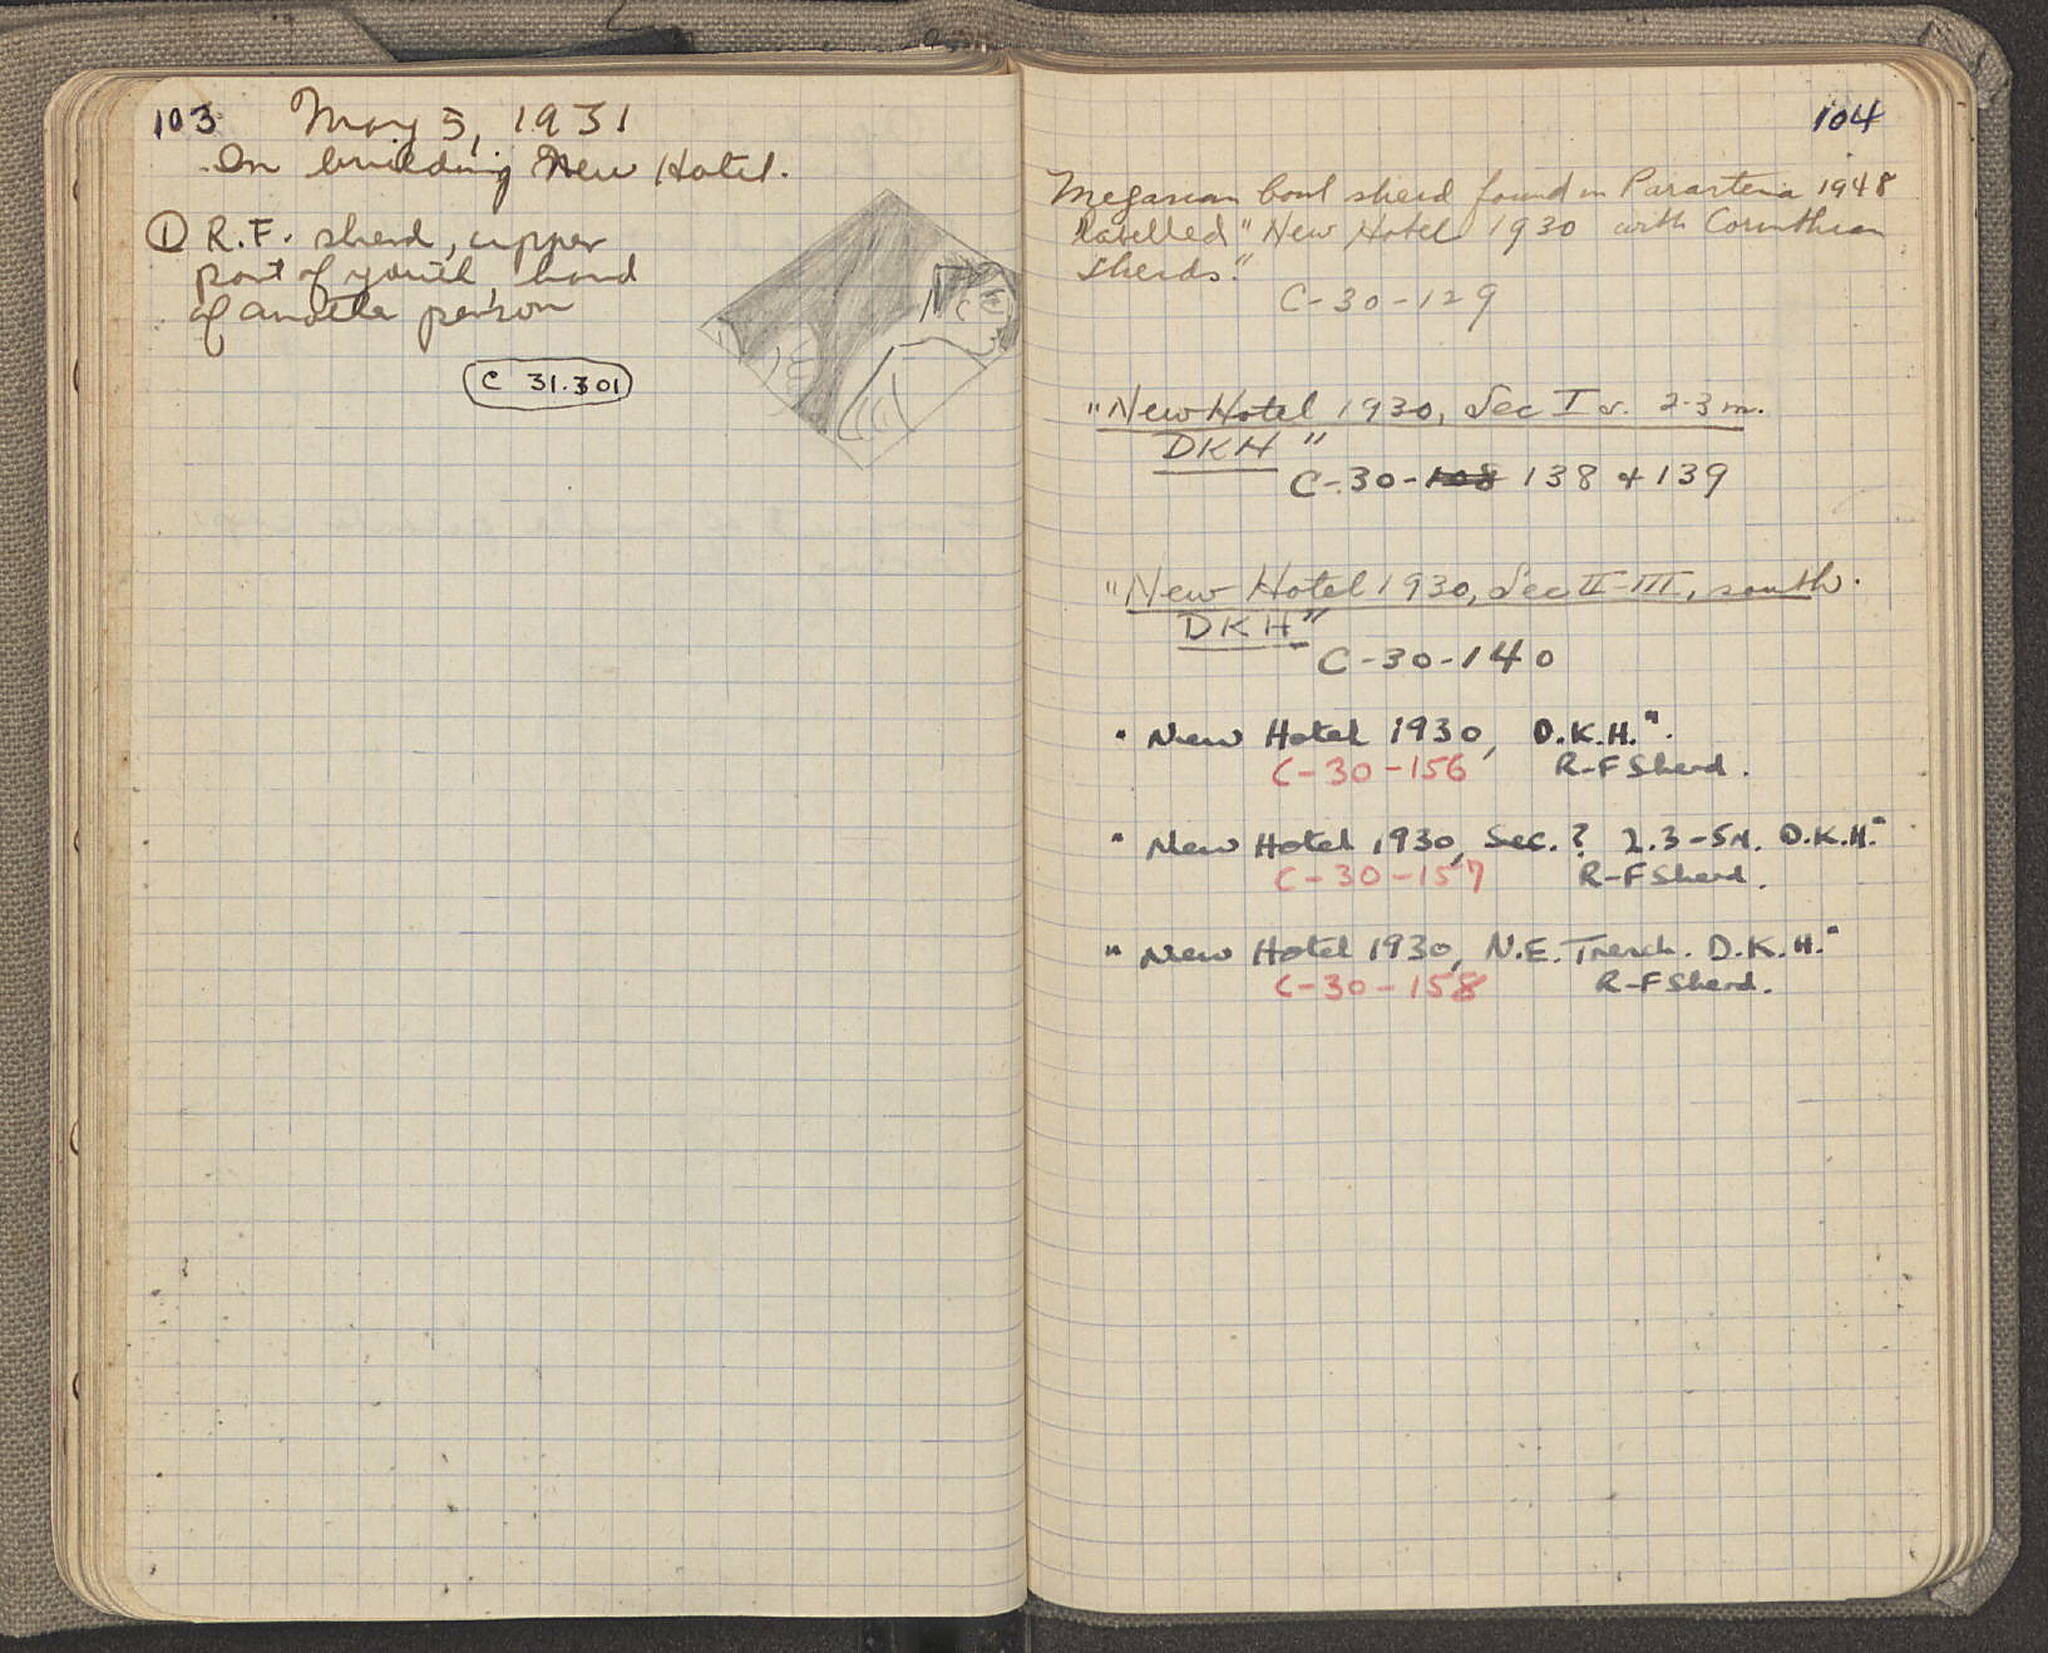 103 May 5, 1931
In building New Hotel.
① R.F. sherd, upper
part of youth, hand
of another person
C 31.301
104
Megarian bowl sherd found in 1948
labelled "New Hotel 1930 with Corinthian
sherds."
C-30-129
"New Hotel 1930, Sec I 2-3 m.
DKH"
C-30-108 138 + 139
"New Hotel 1930, Sec II-III, south.
DKH"
C-30-140
"New Hotel 1930, D.K.H.".
C-30-156 R-F Sherd.
"New Hotel 1930, Sec. ? 2.3-5M. D.K.H."
C-30-157 R-F Sherd.
"New Hotel 1930, N.E. Trench. D.K.H."
C-30-158 R-F Sherd.